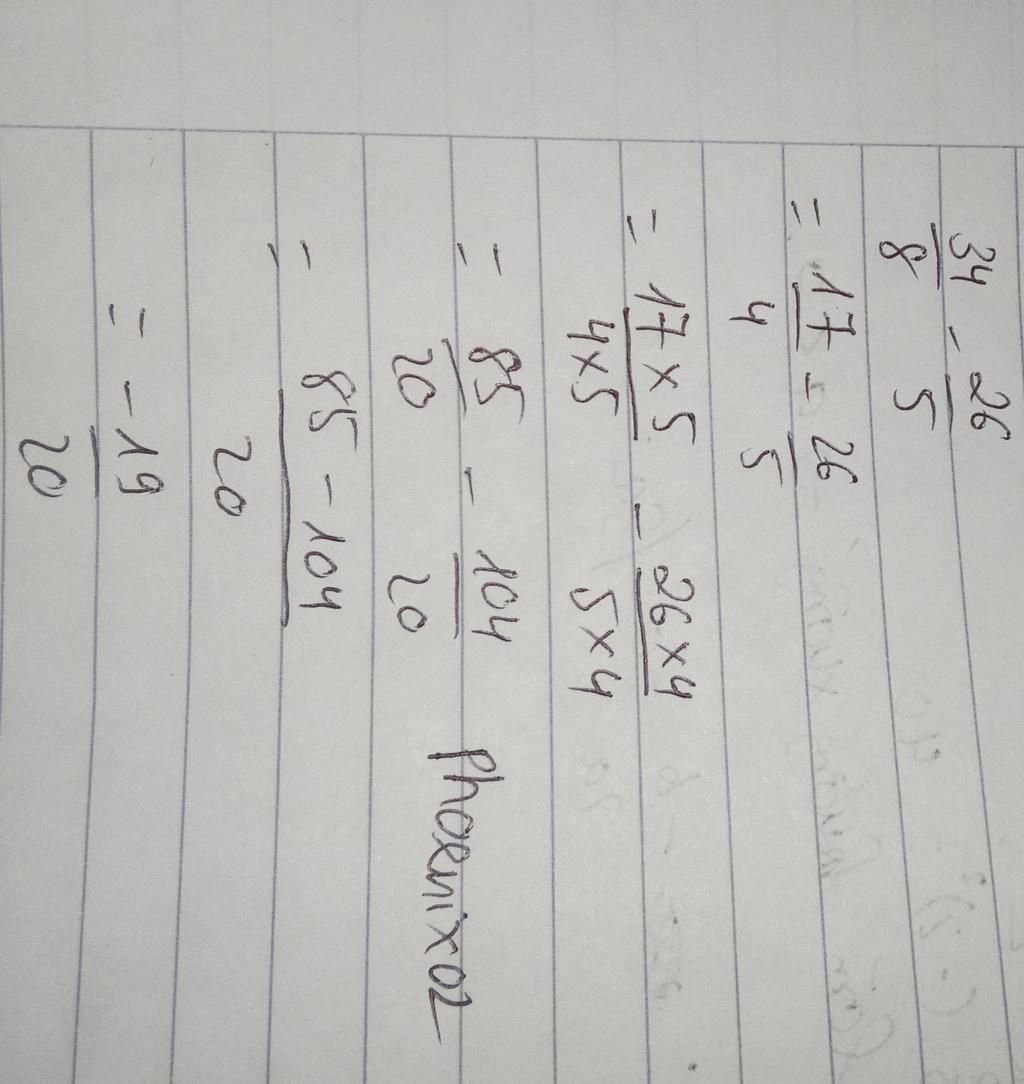 34/8 - 26/5
= 17/4 - 26/5
= 17 x 5/4 x 5 - 26 x 4/5 x 4
= 85/20 - 104/20
Phoenix02
= 85 - 104/20
= - 19/20